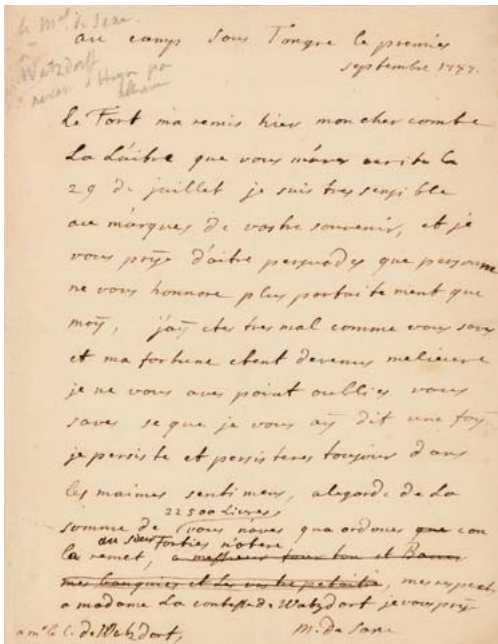 le Mal. de Saxe
a
Watzdorf
au camp sous Tongre le premier
septembre 1747.
Le Fort ma remis hier mon cher comte
La Laitre que vous maves ecrite la
29 de juillet je suis tres sensible
au marques de vostre souvenir, et je
vous prye daitre persuades que personne
ne vous honnore plus parfaitement que
moy, jay etes tres mal comme vous saves
et ma fortune etent devenue melieure
je ne vous aves point oublies vous
saves se que je vous ay dit une foy
je persiste et persisteres toujour dans
les maimes sentimens, alegard de La
22500 Livres
somme de vous naves qua ordoner que con
au sieur Forties notere
la remet, a messieurs tour ton et Baur
mes banquies et Le vostre petaitre, mes respect
a madame La contesse de Watzdort je vous prye
a mr le c. de Watzdort,
M. de Saxe